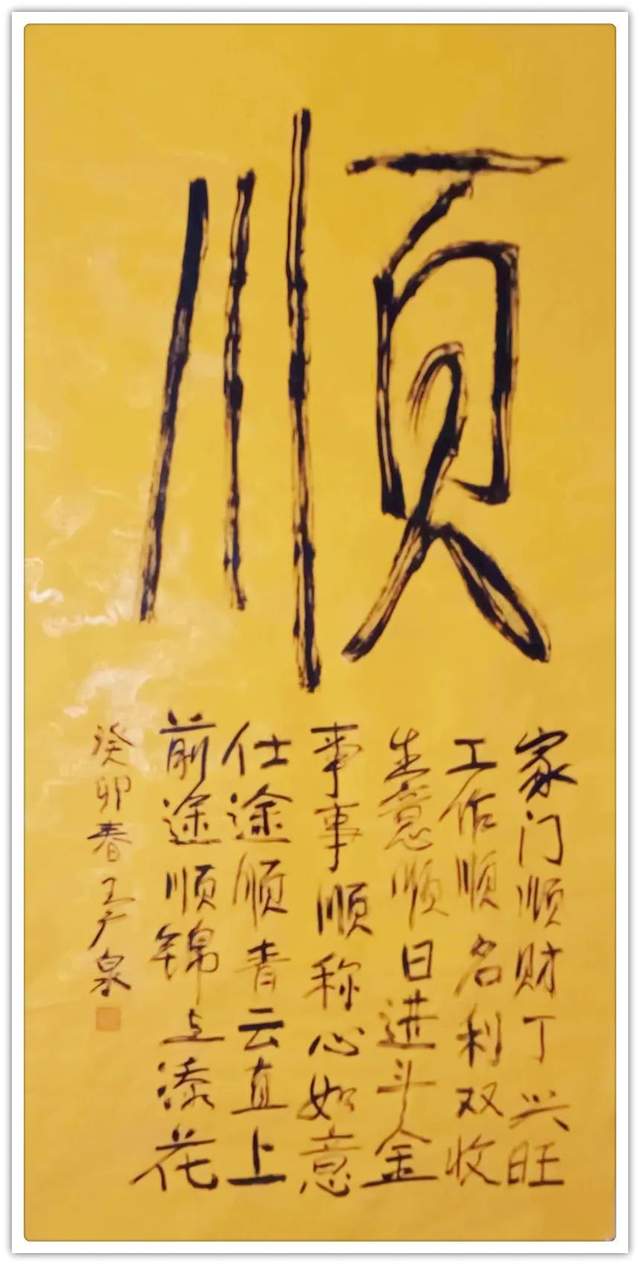 顺
家门顺财丁兴旺
工作顺名利双收
生意顺日进斗金
事事顺称心如意
仕途顺青云直上
前途顺锦上添花
癸卯春王广泉